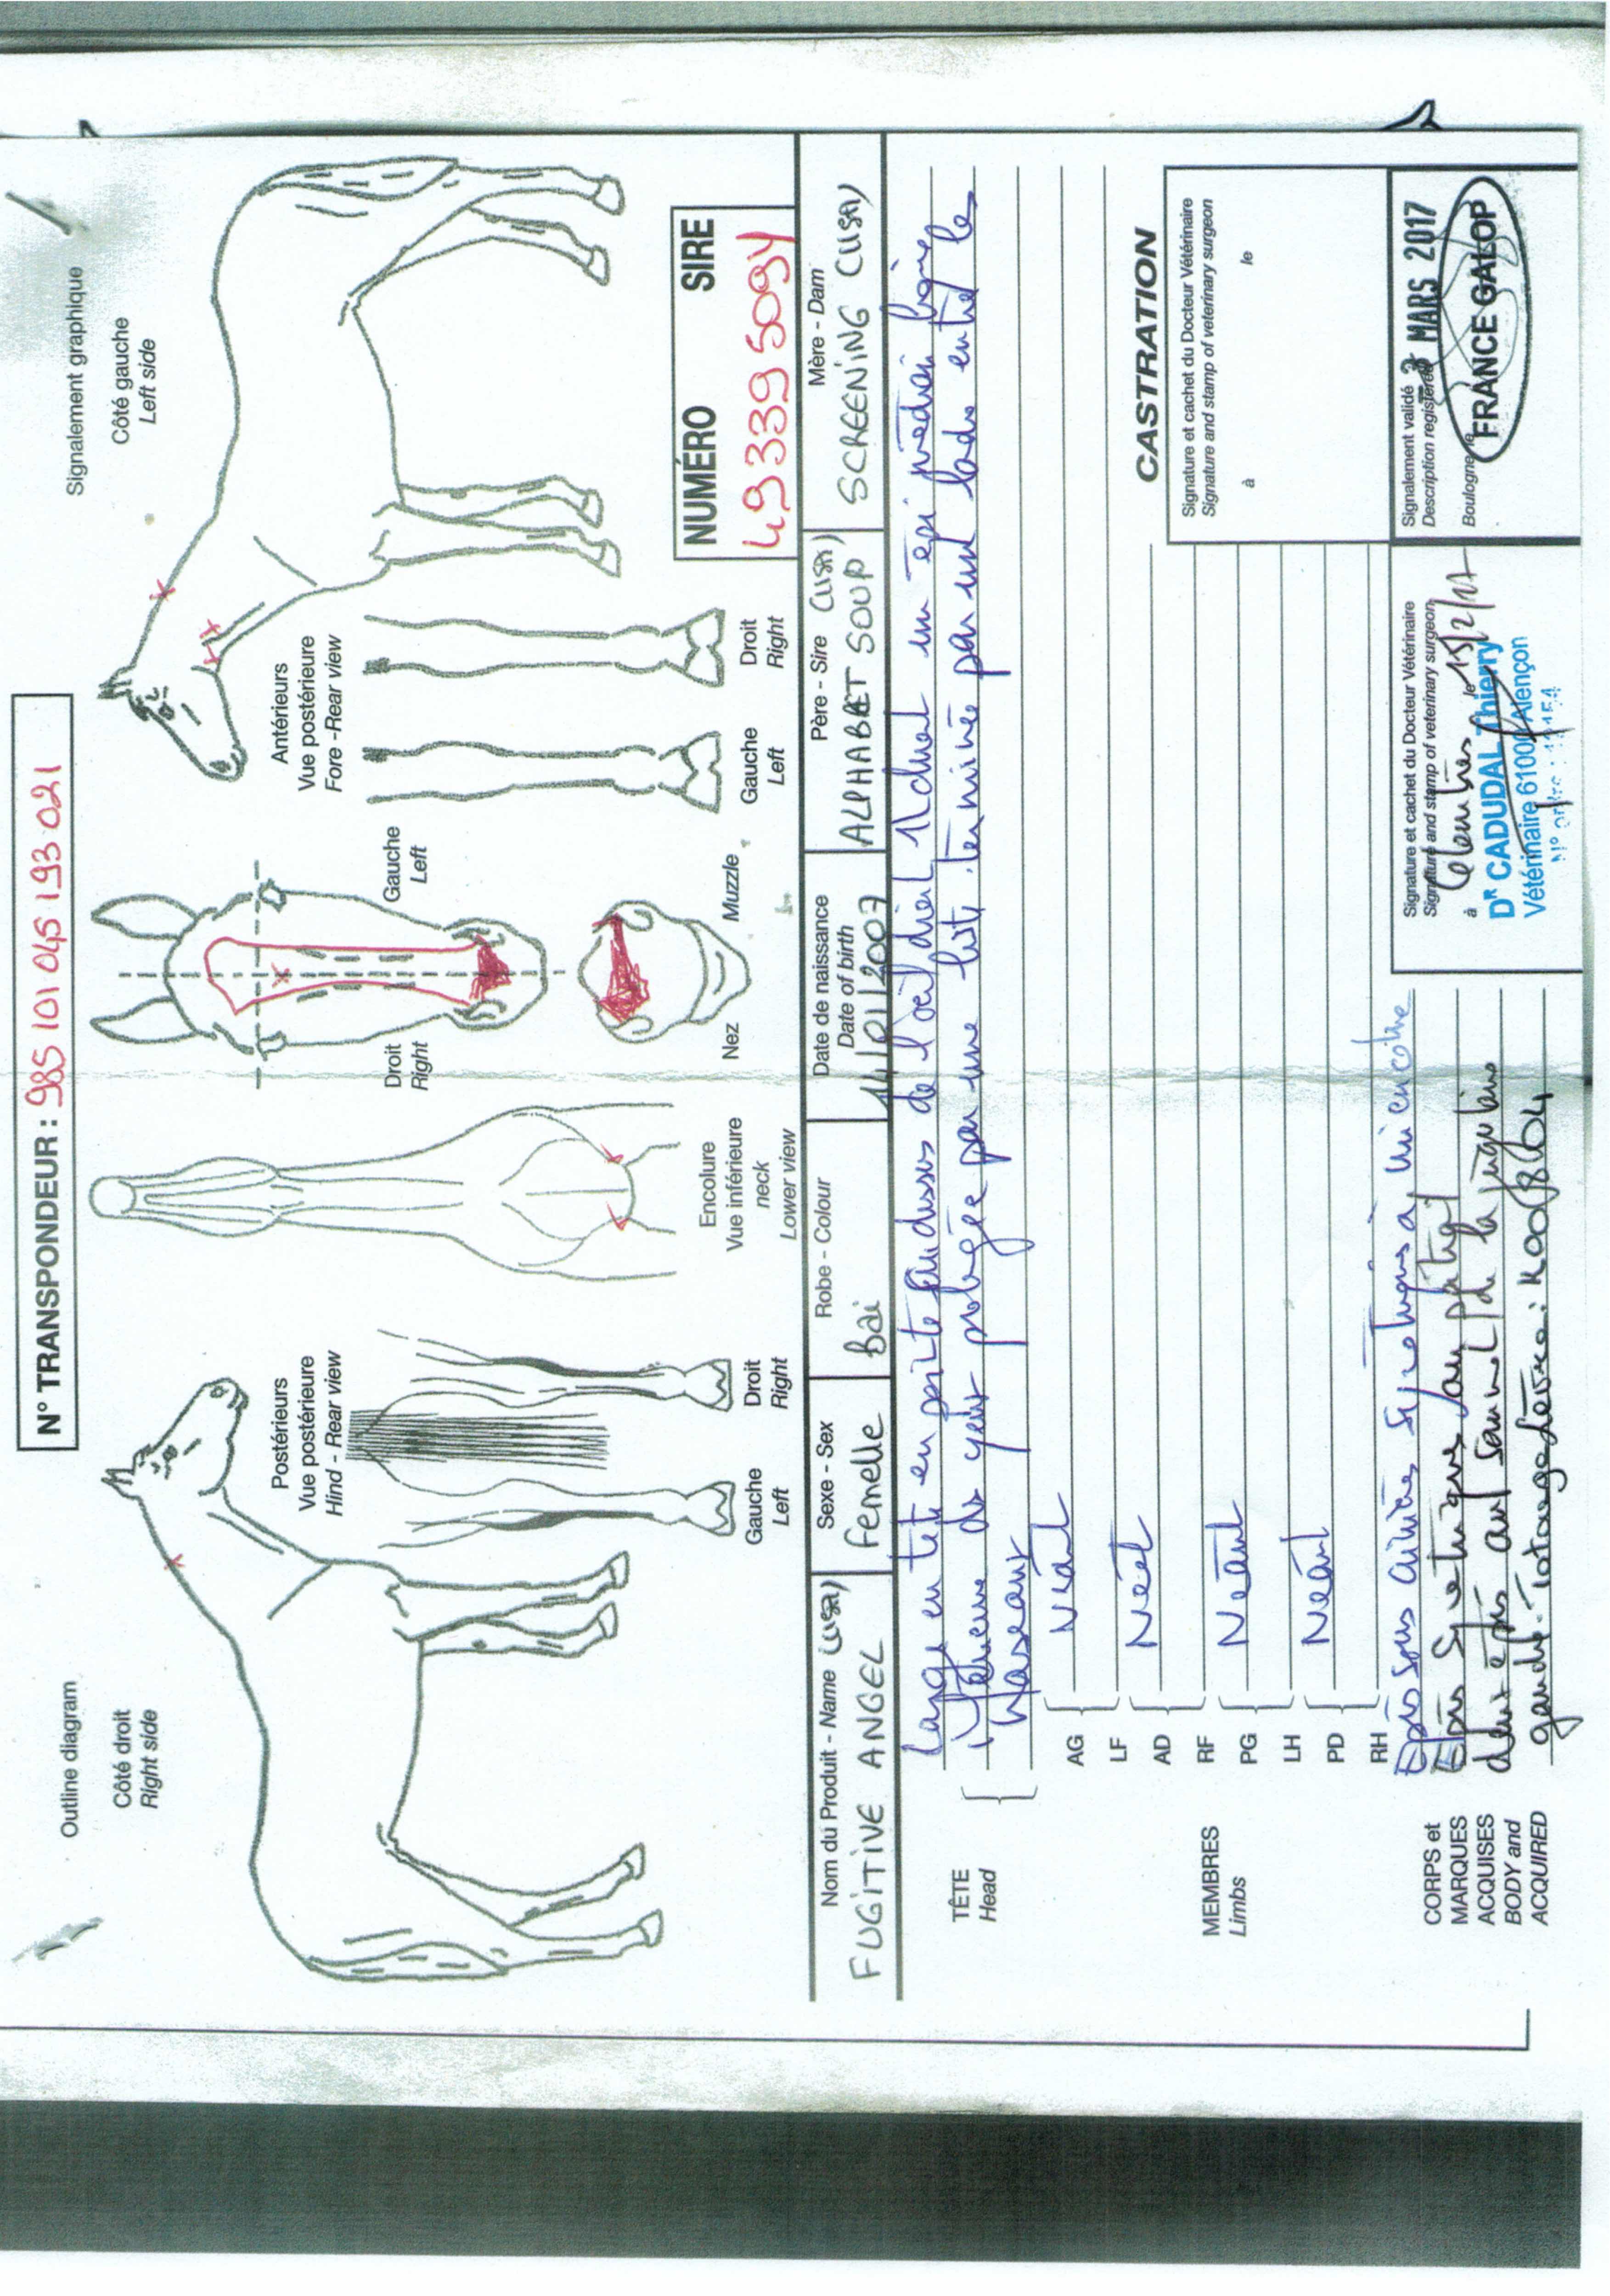 N° TRANSPONDEUR : 985 101 045 193 021
Outline diagram
Signalement graphique
Côté droit
Right side
Côté gauche
Left side
Postérieurs
Vue postérieure
Hind - Rear view
Gauche
Left
Droit
Right
Encolure
Vue inférieure
neck
Lower view
Droit
Right
Gauche
Left
Nez
Muzzle
Antérieurs
Vue postérieure
Fore -Rear view
Gauche
Left
Droit
Right
NUMÉRO SIRE
49339509Y
Nom du Produit - Name (USA)
FUGITIVE ANGEL
Sexe - Sex
Femelle
Robe - Colour
Bai
Date de naissance
Date of birth
14/01/2007
Père - Sire (USA)
ALPHABET SOUP
Mère - Dam
SCREENING (USA)
TÊTE
Head
en tête en pointe au dessus de l'oeil droit incluant un épi médian ligne
des yeux prolongée par une liste terminée par un ladre entre les
naseaux
MEMBRES
Limbs
AG
LF
Néant
AD
RF
Néant
PG
LH
Néant
PD
RH
Néant
CORPS et
MARQUES
ACQUISES
BODY and
ACQUIRED
Epis sous crinière symétriques à mi encolure
Epis symétriques au poitrail
deux épis au sommet de la jugulaire
gauche. Tatouage lèvre : K00864
CASTRATION
Signature et cachet du Docteur Vétérinaire
Signature and stamp of veterinary surgeon
à le
Signature et cachet du Docteur Vétérinaire
Signature and stamp of veterinary surgeon
à le 15/2/17
Dr CADUDAL Thierry
Vétérinaire 61000 Alençon
N°
Signalement validé
Description registered
3 MARS 2017
Boulogne, le
FRANCE GALOP